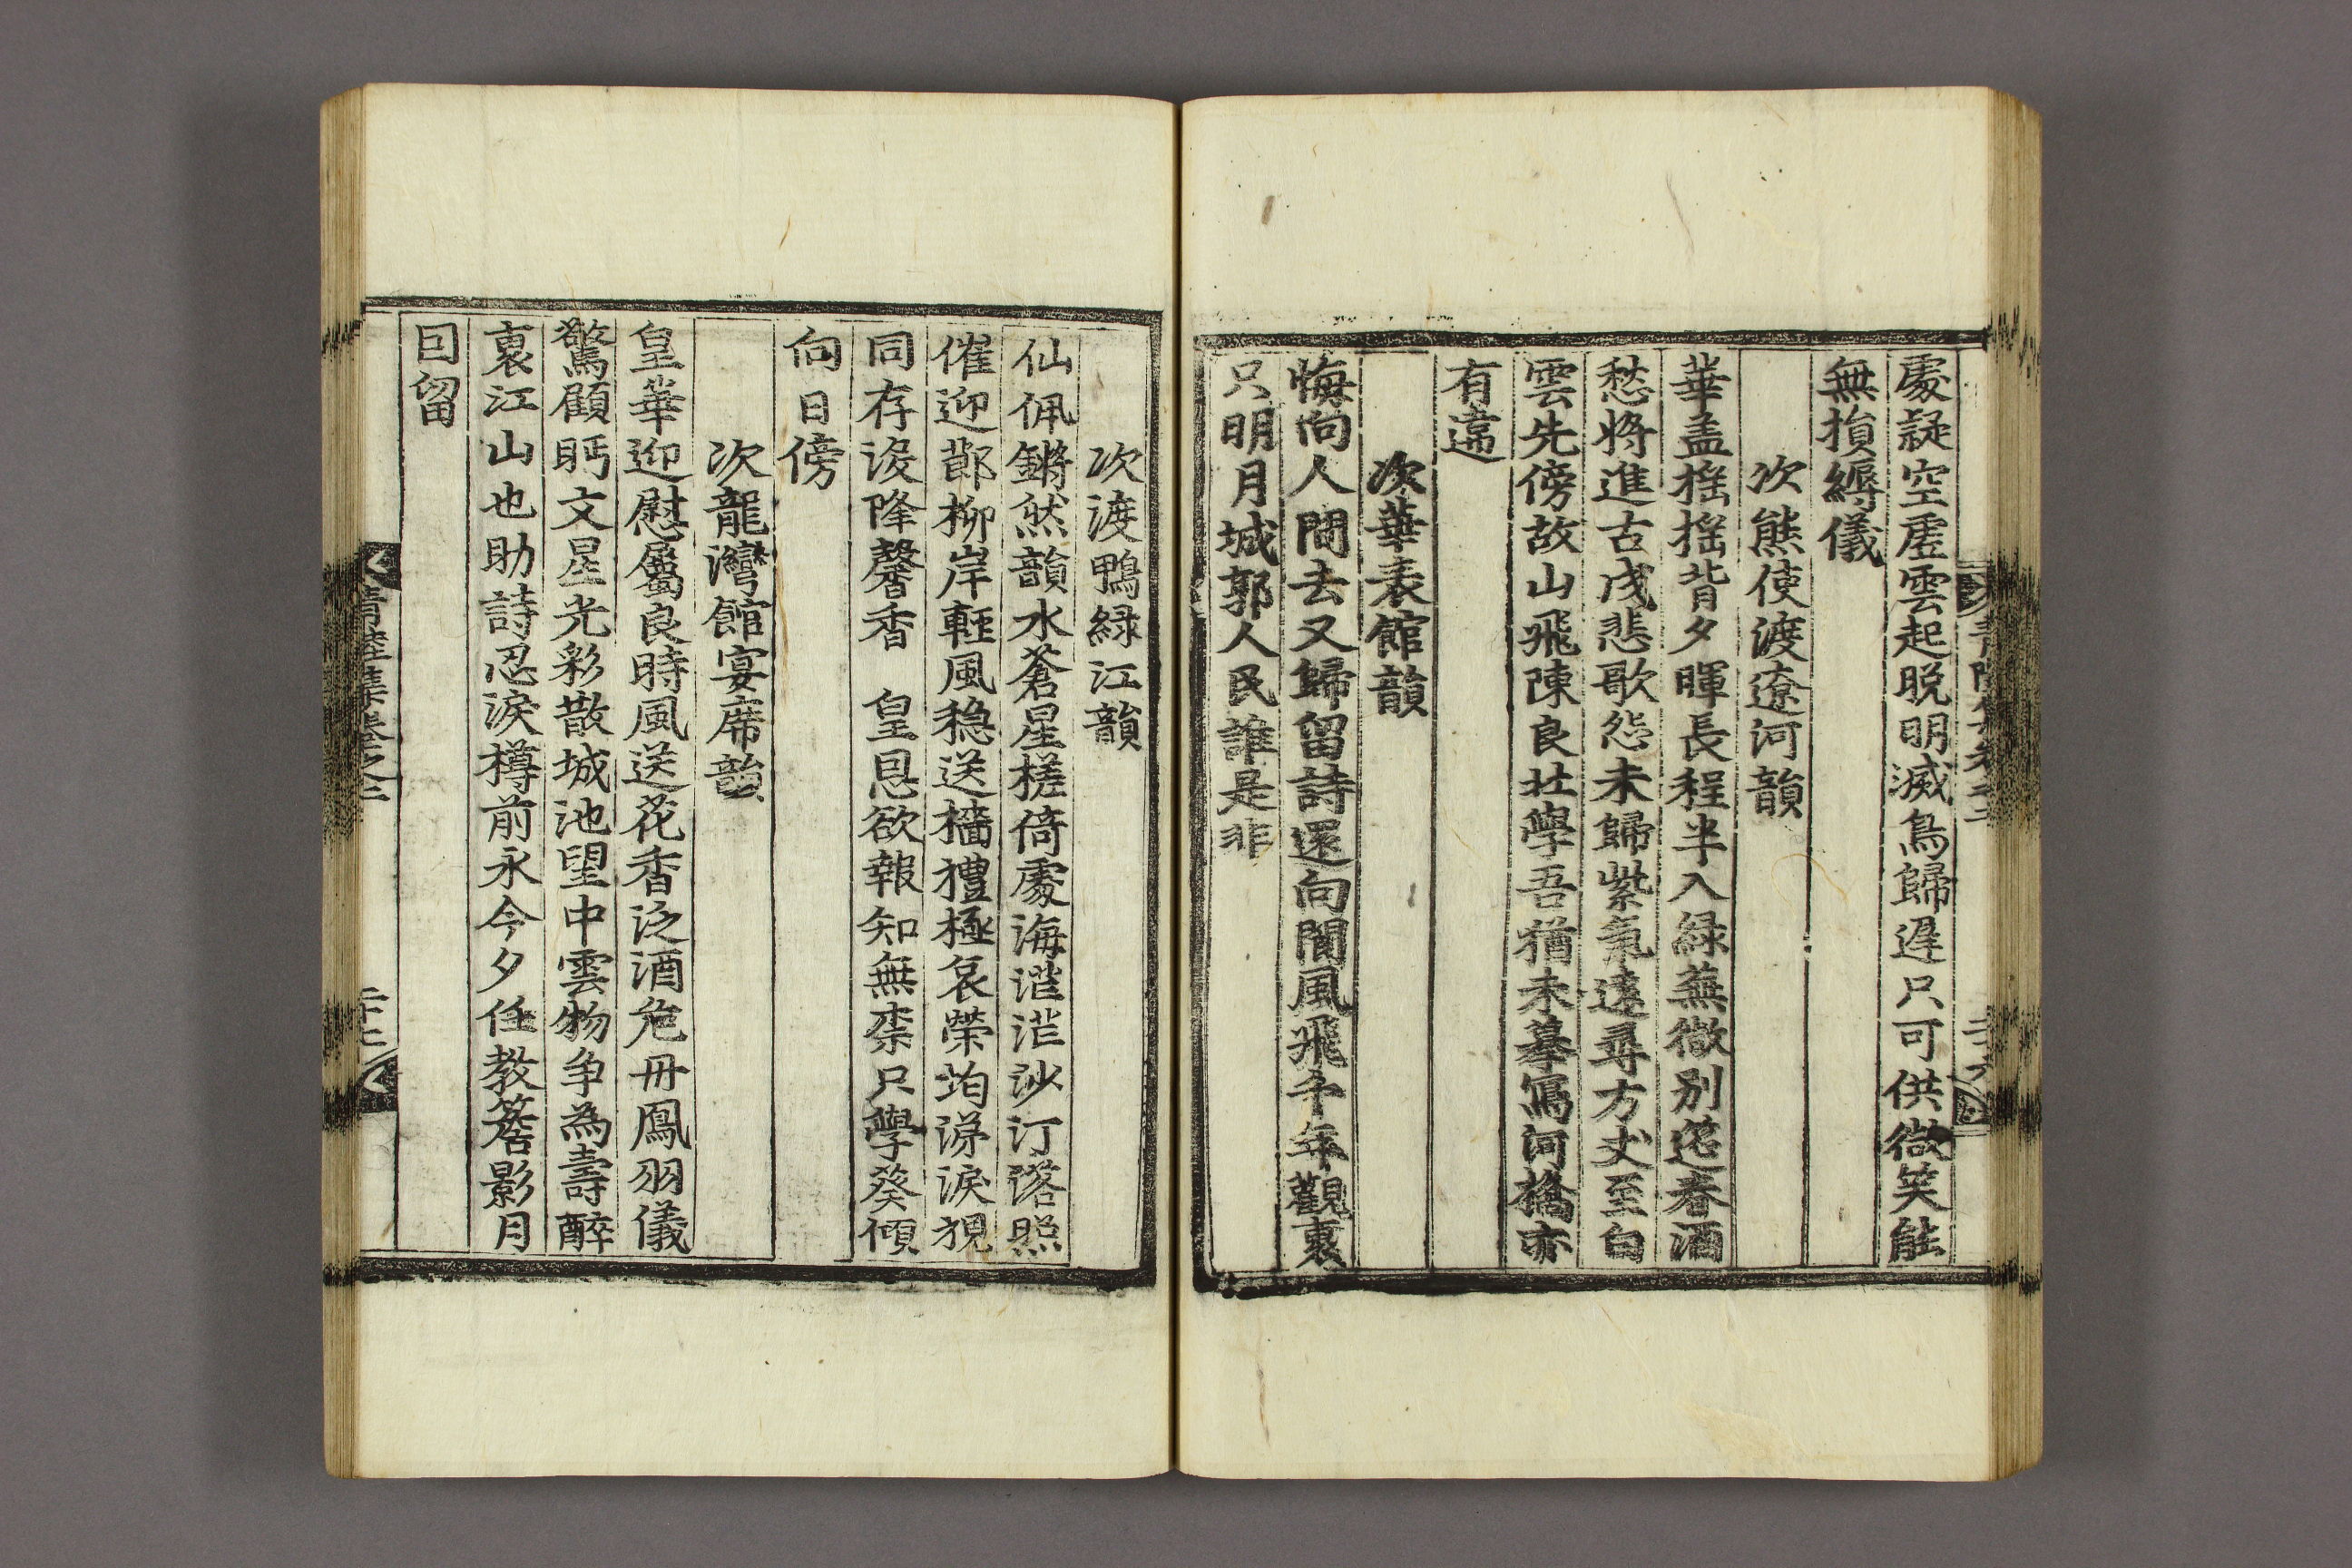 處疑空虛雲起晚明滅鳥歸遲只可供微笑能
無損縟儀
次熊使渡遼河韻
華盖搖搖背夕暉長程半入綠蕪微別筵春酒
愁將進古戍悲歌怨未歸紫氣遠尋方丈至白
雲先傍故山飛陳良壯學吾猶未摹寫河橋亦
有違
次華表館韻
悔向人間去又歸留詩還向閬風飛千年觀裏
只明月城郭人民誰是非
次渡鴨綠江韻
仙佩鏘然韻水蒼星槎倚處海茫茫沙汀落照
催迎節柳岸輕風穩送檣禮極哀榮均涕淚視
同存沒降馨香 皇恩欲報知無柰只學葵傾
向日傍
次龍灣館宴席韻
皇華迎慰屬良時風送花香泛酒巵丹鳳羽儀
驚顧眄文星光彩散城池望中雲物爭為壽醉
裏江山也助詩忍淚樽前永今夕任教簷影月
囙留
青陸集卷之二 二十七